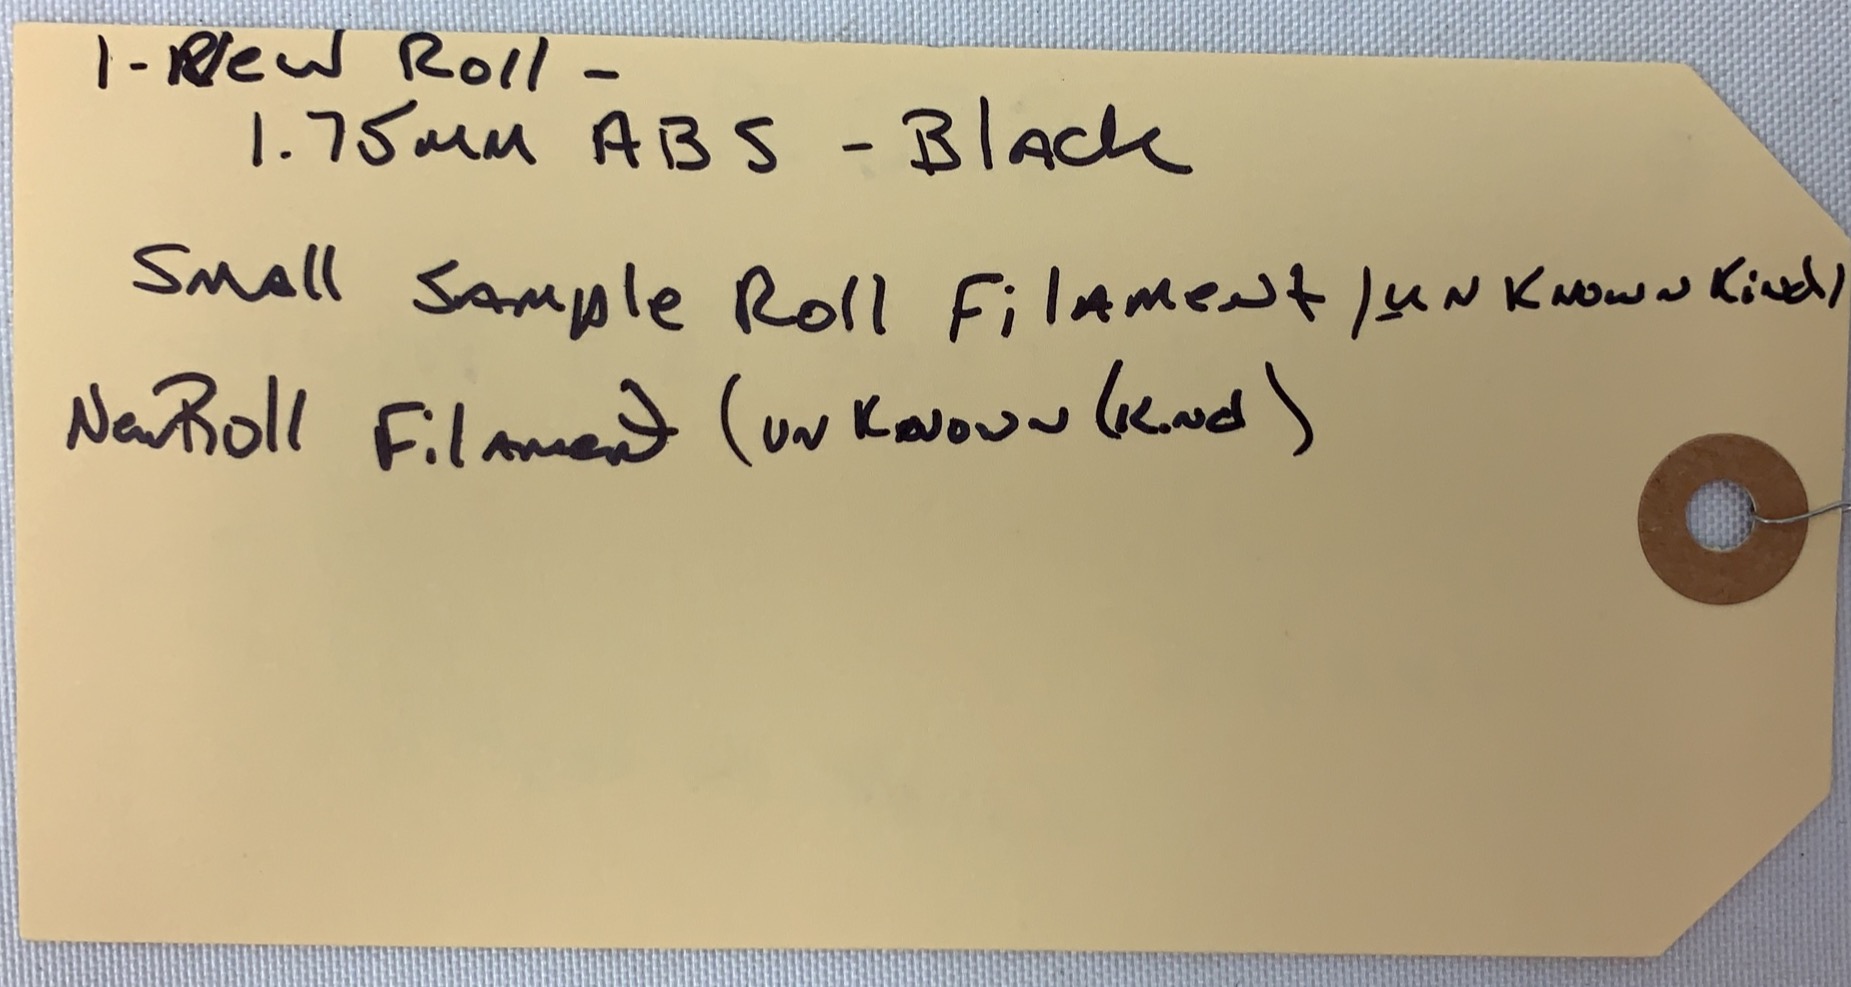 1-New Roll -
1.75mm ABS - Black
Small Sample Roll Filament (unknown Kind)
New Roll Filament (unknown (Kind)